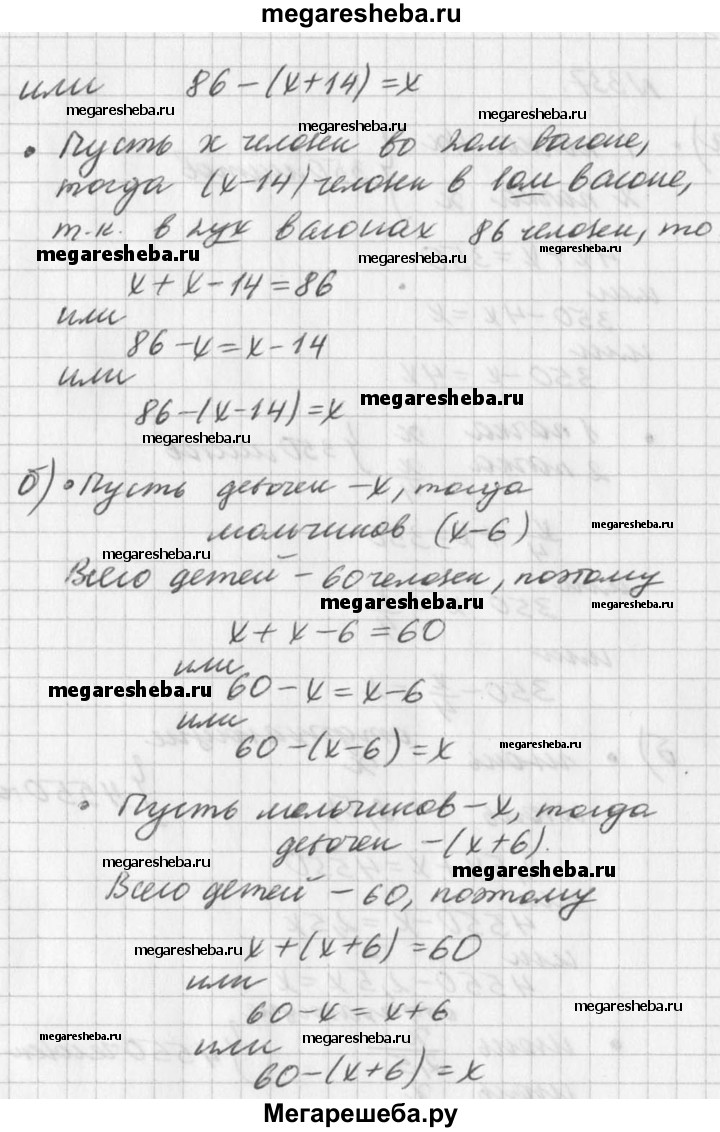 megaresheba.ru
или 86-(x+14)=x
megaresheba.ru
megaresheba.ru
megaresheba.ru
• Пусть x человек во 2ом вагоне,
тогда (x-14) человек в 1ом вагоне,
т.к. в 2ух вагонах 86 человек, то
megaresheba.ru
megaresheba.ru
megaresheba.ru
x+x-14=86
или
86-x=x-14
или
86-(x-14)=x
megaresheba.ru
megaresheba.ru
б) • Пусть девочек -x, тогда
мальчиков (x-6)
megaresheba.ru
megaresheba.ru
Всего детей - 60 человек, поэтому
megaresheba.ru
megaresheba.ru
x+x-6=60
или
megaresheba.ru
60-x=x-6
или
60-(x-6)=x
megaresheba.ru
• Пусть мальчиков -x, тогда
девочек -(x+6).
megaresheba.ru
megaresheba.ru
Всего детей - 60, поэтому
megaresheba.ru
x+(x+6)=60
или
60-x=x+6
megaresheba.ru
megaresheba.ru
или
megaresheba.ru
60-(x+6)=x
Мегарешеба.ру